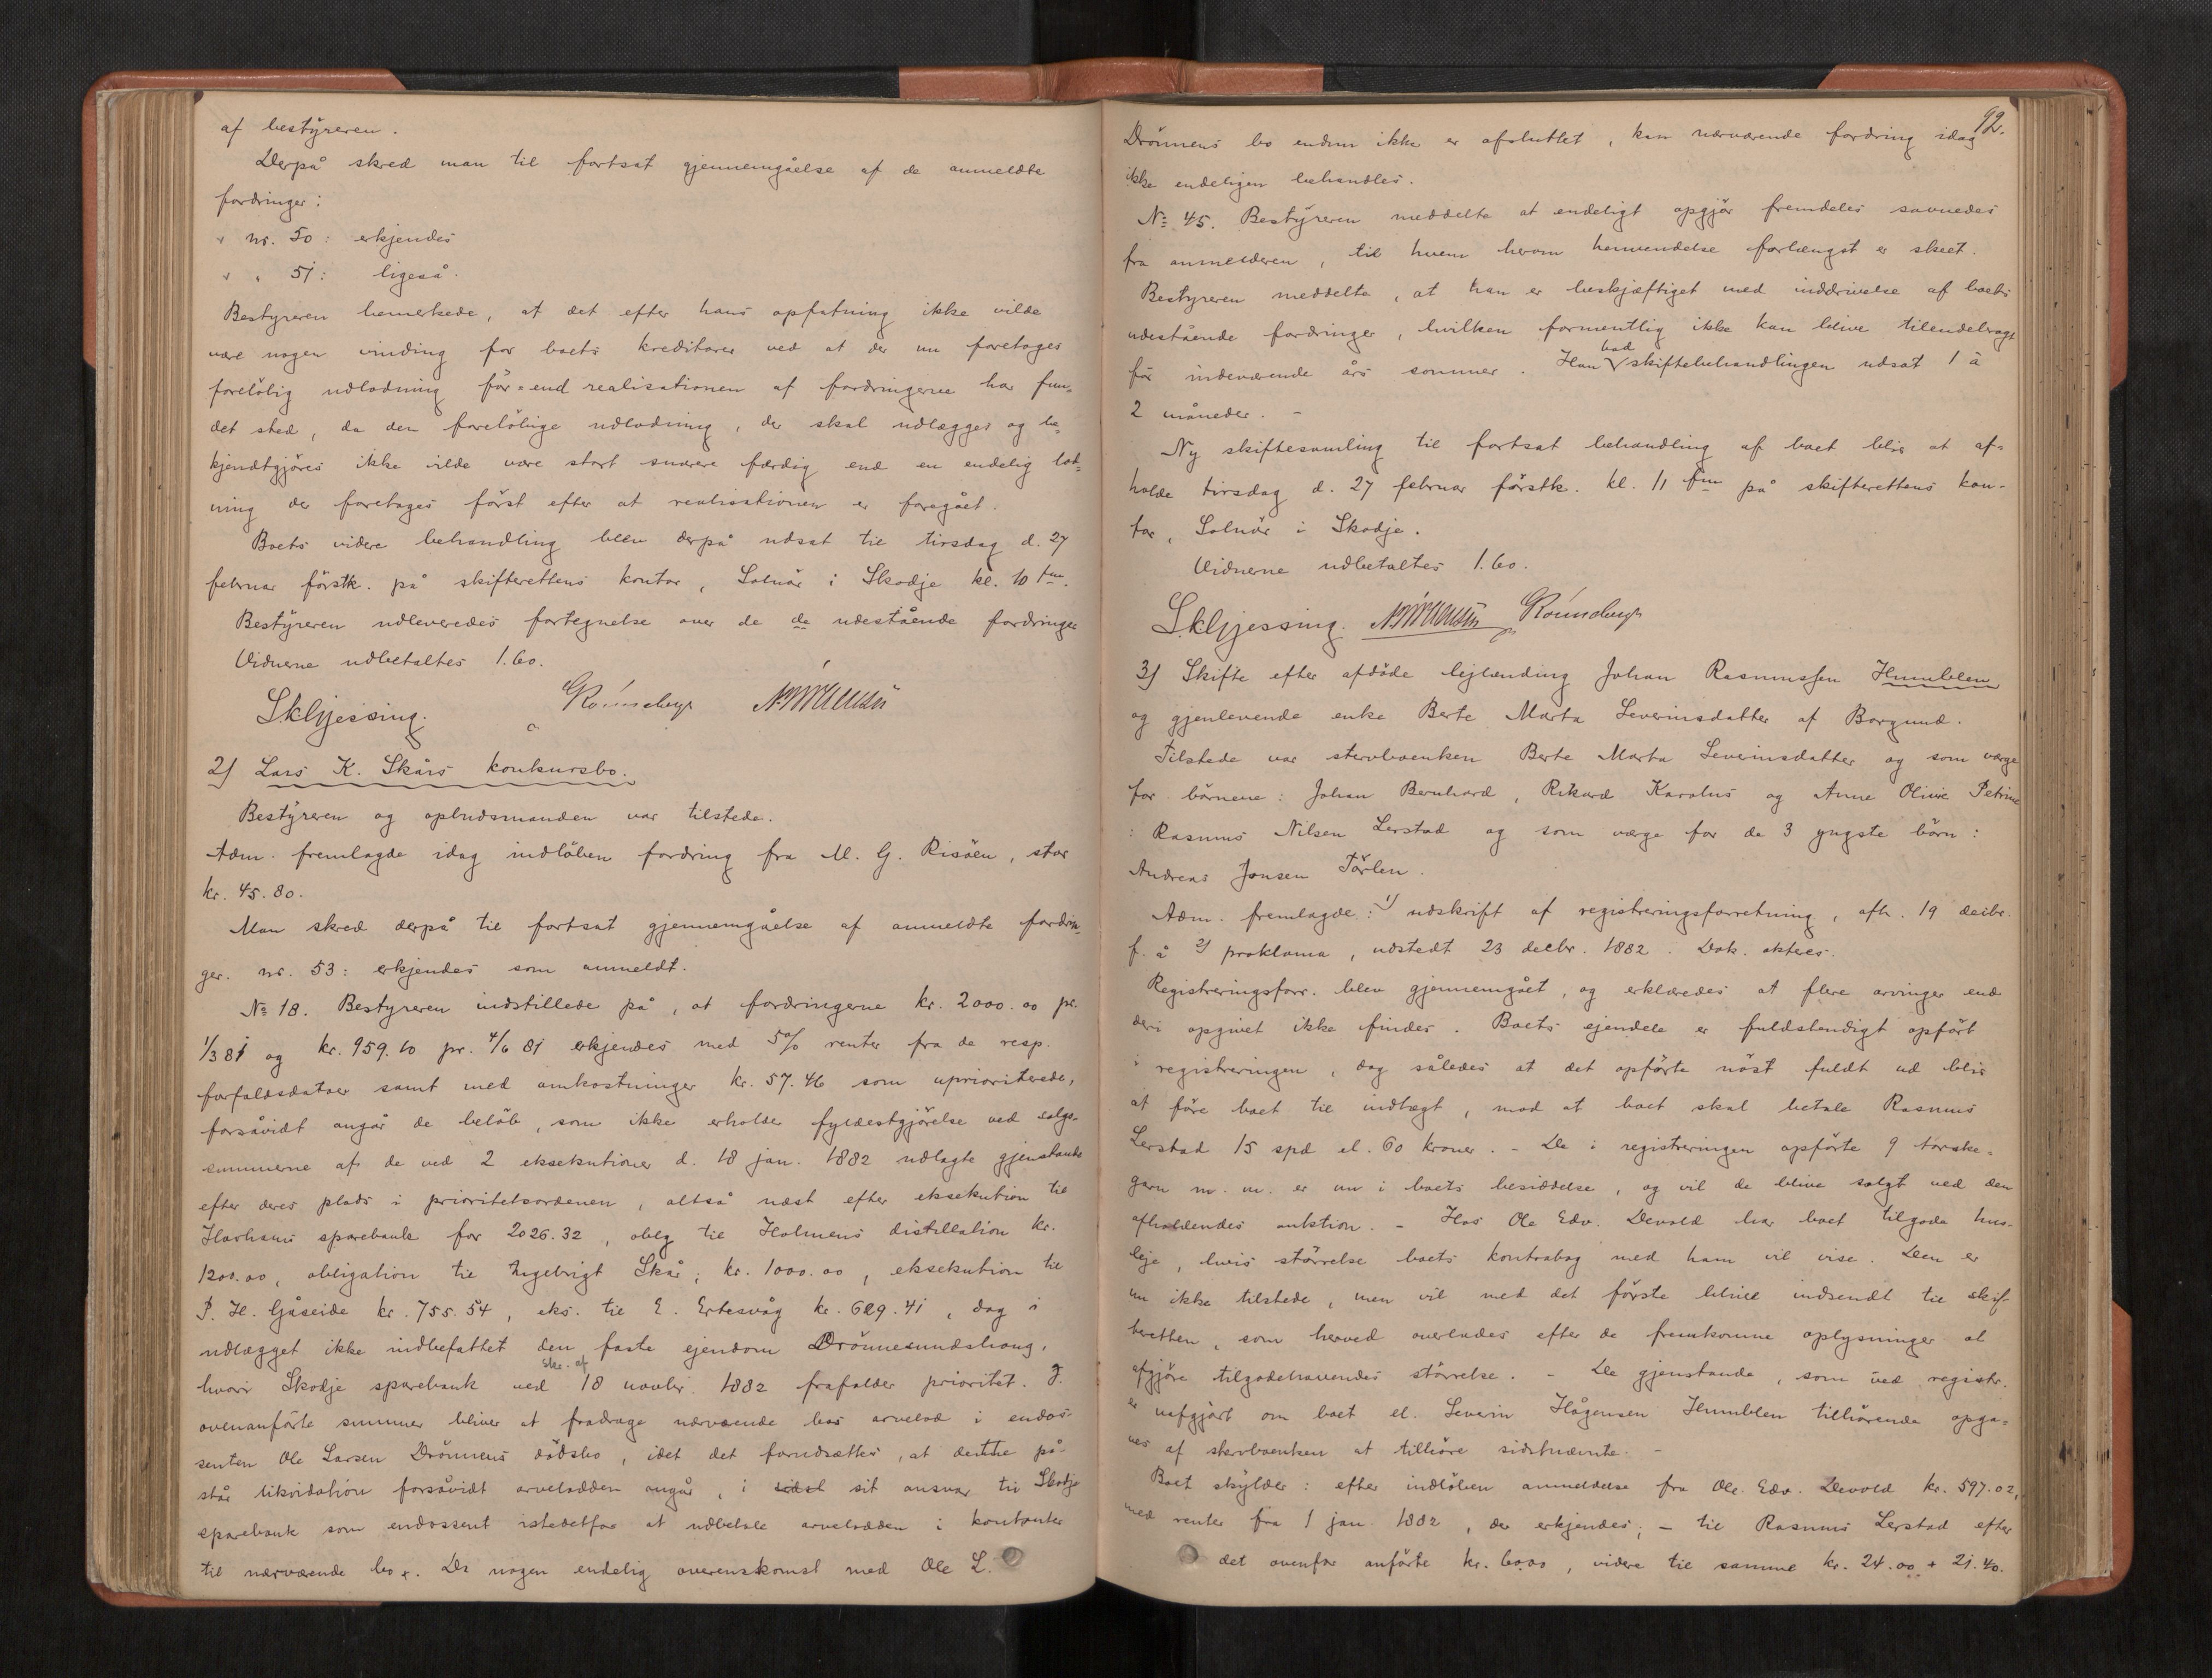 af bestÿreren.
Derpå skred man til fortsat gjennemgåelse af de anmeldte
fordringer:
v nr. 50: erkjendes
v " 51: ligeså.
Bestyreren bemerkede, at det efter hans opfatning ikke vilde
være nogen vinding for boets kreditorer ved at der nu foretages
foreløbig udlodning før-end realisationen af fordringerne har fun-
det sted, da den foreløbige udlodning, der skal udlægges og be-
kjendtgjøres ikke vilde være stort snarere færdig end en endelig lod-
ning der foretages først efter at realisationen er foregået.
Boets videre behandling blev derpå udsat til tirsdag d. 27
februar førstk. på skifterettens kontor, Solnör i Skodje kl. 10 fm.
Bestÿreren udleveredes fortegnelse over de de udestående fordringer
Vidnerne udbetaltes 1.60.
S.klgjessing. Rönneberg
2) Lars K. Skårs konkursbo.
Bestÿreren og opbudsmanden var tilstede.
Adm. fremlagde idag indløben fordring fra M. G. Risöen, stor
kr. 45.80.
Man skred derpå til fortsat gjennemgåelse af anmeldte fordrin-
ger. nr. 53: erkjendes som anmeldt.
No 18. Bestyreren indstillede på, at fordringerne kr. 2000.00 pr.
1/3 81 og kr. 959.10 pr. 4/6 81 erkjendes med 5% renter fra de resp.
forfaldsdatoer samt med omkostninger kr. 57.46 som uprioriterede,
forsåvidt angår de beløb, som ikke erholde fyldestgjørelse ved salgs-
summerne af de ved 2 eksekutioner d. 18 jan. 1882 udlagte gjenstande
efter deres plads i prioritetsordenen, altså næst efter eksekution til
Harhams sparebank for 2026.32, oblg til Holmens distillation kr.
1200.00, obligation til Ingebrigt Skår; kr. 1000.00, eksekution til
P. H. Gåseide kr. 755.54, eks. til E. Ertesvåg kr. 629.41, dog i
udlægget ikke indbefattet den faste ejendom Drönnesundshaug,
hvori Skodje sparebank ved skr. af 18 novbr. 1882 frafalder prioritet. I
ovenanførte summer bliver at fradrage nærværende bos arvelod i endos-
senten Ole Larsen Drönnens dødsbo, idet det forudsættes, at dette på-
står likvidation forsåvidt arvelodden angår, i sidst sit ansvar til Skodje
sparebank som endossent istedetfor at udbetale arvelodden i kontanter
til nærværende bo. Da nogen endelig overenskomst med Ole L.
92.
Drönnens bo endnu ikke er afsluttet, kan nærværende fordring idag
ikke endeligen behandles.
No 45. Bestÿreren meddelte at endeligt opgjör fremdeles savnedes
fra anmelderen, til hvem herom henvendelse forlængst er skeet.
Bestyreren meddelte, at han er beskjæftiget med inddrivelse af boets
udestående fordringer, hvilken formentlig ikke kan blive tilendebragt
før indeværende års sommer. Han bad skiftebehandlingen udsat 1 à
2 måneder. -
Ny skiftesamling til fortsat behandling af boet blir at af-
holde tirsdag d. 27 februar førstk. kl. 11 fm på skifterettens kon-
tor, Solnör i Skodje.
Vidnerne udbetaltes 1.60.
S.klgjessing. Rönneberg
3) Skifte efter afdøde lejlænding Johan Rasmussen Humblen
og gjenlevende enke Berte Marta Severinsdatter af Borgund.
Tilstede var stervboenken Berte Marta Severinsdatter og som værge
for børnene: Johan Bernhard, Rikard Karolus og Anne Olive Petrine
: Rasmus Nilsen Lerstad og som værge for de 3 yngste børn:
Andreas Jonsen Törlen.
Adm. fremlagde: 1) udskrift af registreringsforretning, afh. 19 decbr.
f. å 2) proklama, udstedt 23 decbr. 1882. Dok. akteres.
Registreringsforr. blev gjennemgået, og erklæredes at flere arvinger end
deri opgivet ikke findes. Boets ejendele er fuldstendigt opført
i registreringen, dog således at det opførte nøst fuldt ud blir
at føre boet til indtægt, mod at boet skal betale Rasmus
Lerstad 15 spd el. 60 kroner. - De i registreringen opførte 9 torske-
garn m. m. er nu i boets besiddelse, og vil de blive solgt ved den
afholdendes auktion. - Hos Ole Edv. Devold har boet tilgode hus-
leje, hvis størrelse boets kontrabog med ham vil vise. Den er
nu ikke tilstede, men vil med det første blive indsendt til skif-
teretten, som herved overlades efter de fremkomne oplysninger at
afgjöre tilgodehavendes størrelse. - De gjenstande, som ved registr.
er uafgjört om boet el. Severin Hågensen Humblen tilhørende opga-
ves af stervboenken at tilhöre sidstnævnte. -
Boet skylder: efter indløben anmeldelse fra Ole Edv. Devold kr. 597.02,
med renter fra 1 jan. 1882, der erkjendes; - til Rasmus Lerstad efter
det ovenfor anførte kr. 60.00, videre til samme kr. 24.00 + 21.40.